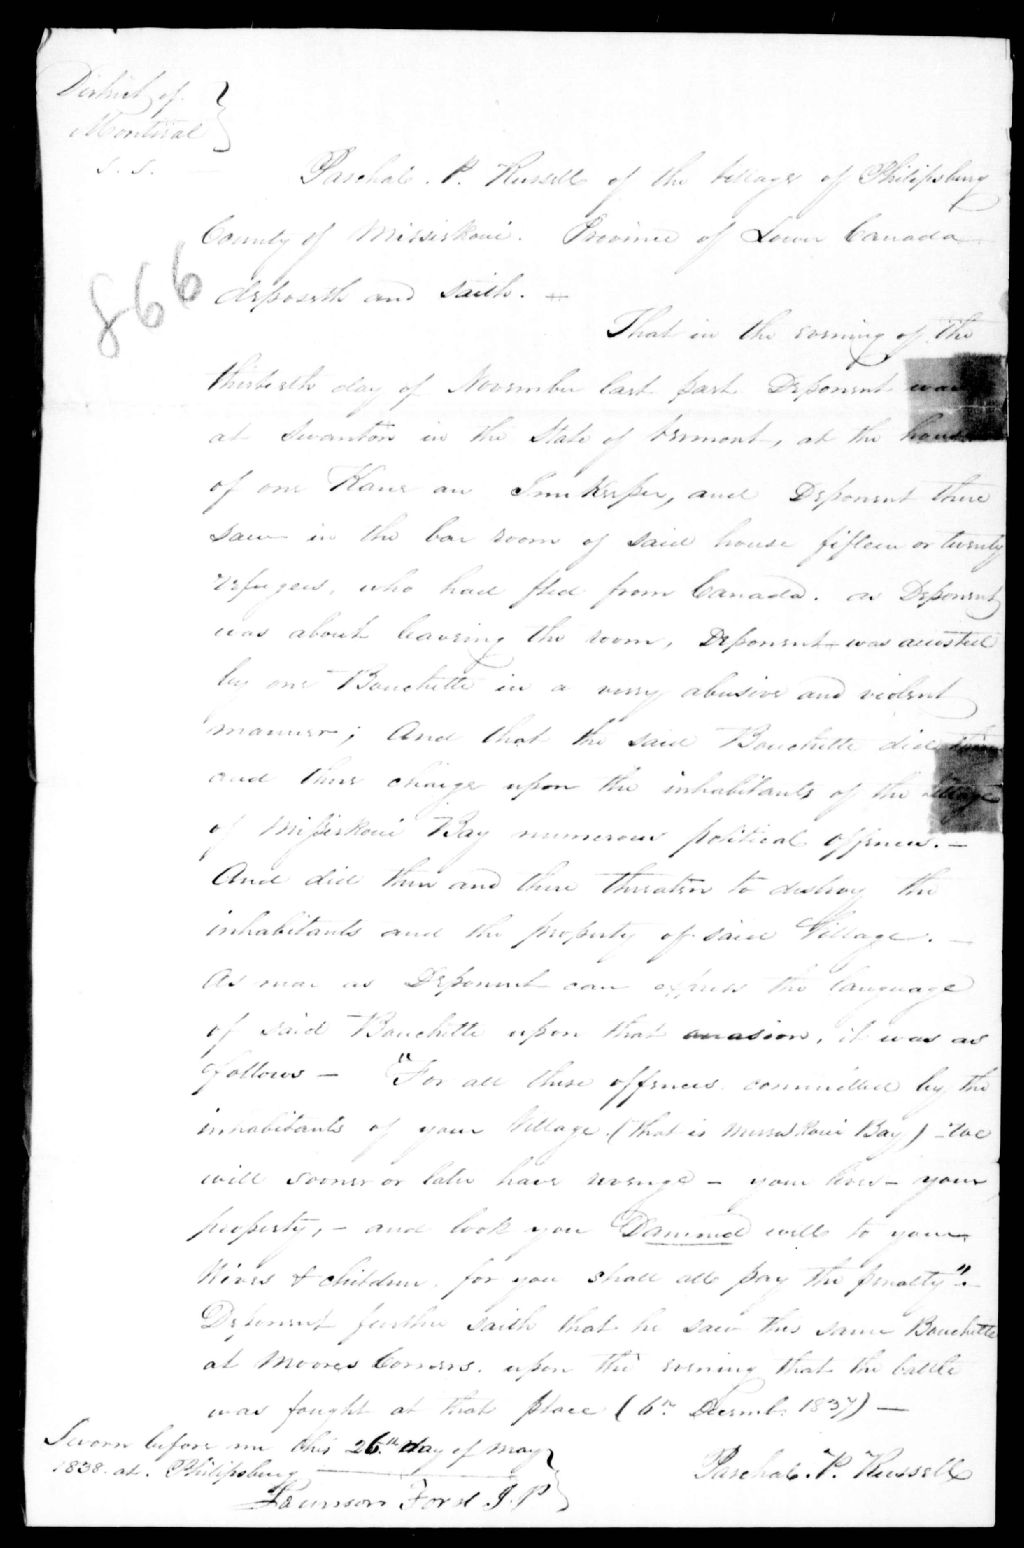 District of
Montreal
S. S.
Paschal. P. Russell of the Village of Philipsburg
County of Missiskoui. Province of Lower Canada
deposeth and saith. —
866
That in the evening of the
thirtieth day of November last past Deponent was
at Swanton in the State of Vermont, at the house
of one Kane an Inn Keeper, and Deponent there
saw in the bar room of said house fifteen or twenty
refugees, who had fled from Canada. as Deponent
was about leaveing the room, Deponent was accosted
by one Bouchette in a very abusive and violent
manner; And that the said Bouchette did then
and there charge upon the inhabitants of the Village
of Missiskoui Bay numerous political offences. —
And did then and there threaten to destroy the
inhabitants and the property of said Village. —
As near as Deponent can express the language
of said Bouchette upon that occasion, it was as
follows — "For all these offences committed by the
inhabitants of your Village (that is Missiskoui Bay) — we
will sooner or later have revenge — your lives — your
property, — and look you Dammed well to your
Wives & children. for you shall all pay the penalty". —
Deponent further saith that he saw this same Bouchette
at Moores Corners. upon the evening that the battle
was fought at that place (6th Decemb. 1837) —
Sworn before me this 26th day of May
1838. at. Philipsburg
Paschal. P. Russell
Ford J. P